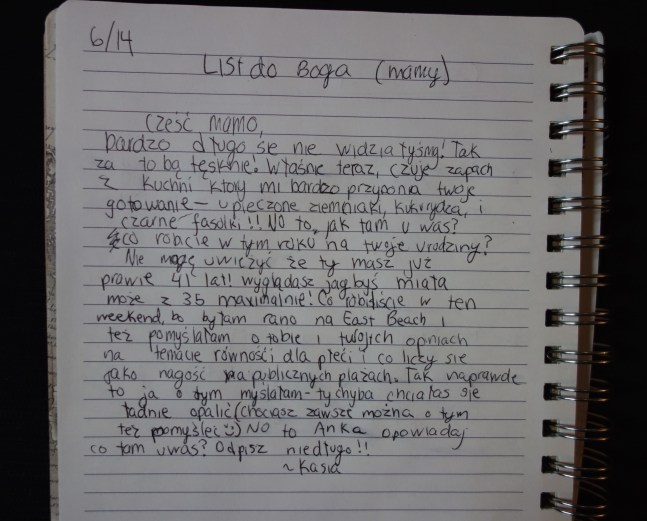 6/14
List do Boga (mamy)
Cześć mamo,
bardzo długo się nie widziałyśmy! Tak
za tobą tęsknie! Właśnie teraz, czuję zapach
z kuchni który mi bardzo przypomina twoje
gotowanie - upieczone ziemniaki, kukurydza, i
czarne fasolki!! No to, jak tam u was?
co robicie w tym roku na twoje urodziny?
Nie mogę uwieżyć że ty masz już
prawie 41 lat! wyglądasz jagbyś miała
może z 35 maximalnie! Co robiliście w ten
weekend, bo byłam rano na East Beach i
też pomyślałam o tobie i twojich opiniach
na temacie równości dla płeci i co liczy się
jako nagość na publicznych plażach. Tak naprawdę
to ja o tym myslałam - ty chyba chciałaś się
ładnie opalić (chociasz zawsze można o tym
też pomyśleć :) NO to Anka opowiadaj
co tam uwas? Odpisz niedługo!!
~ Kasia